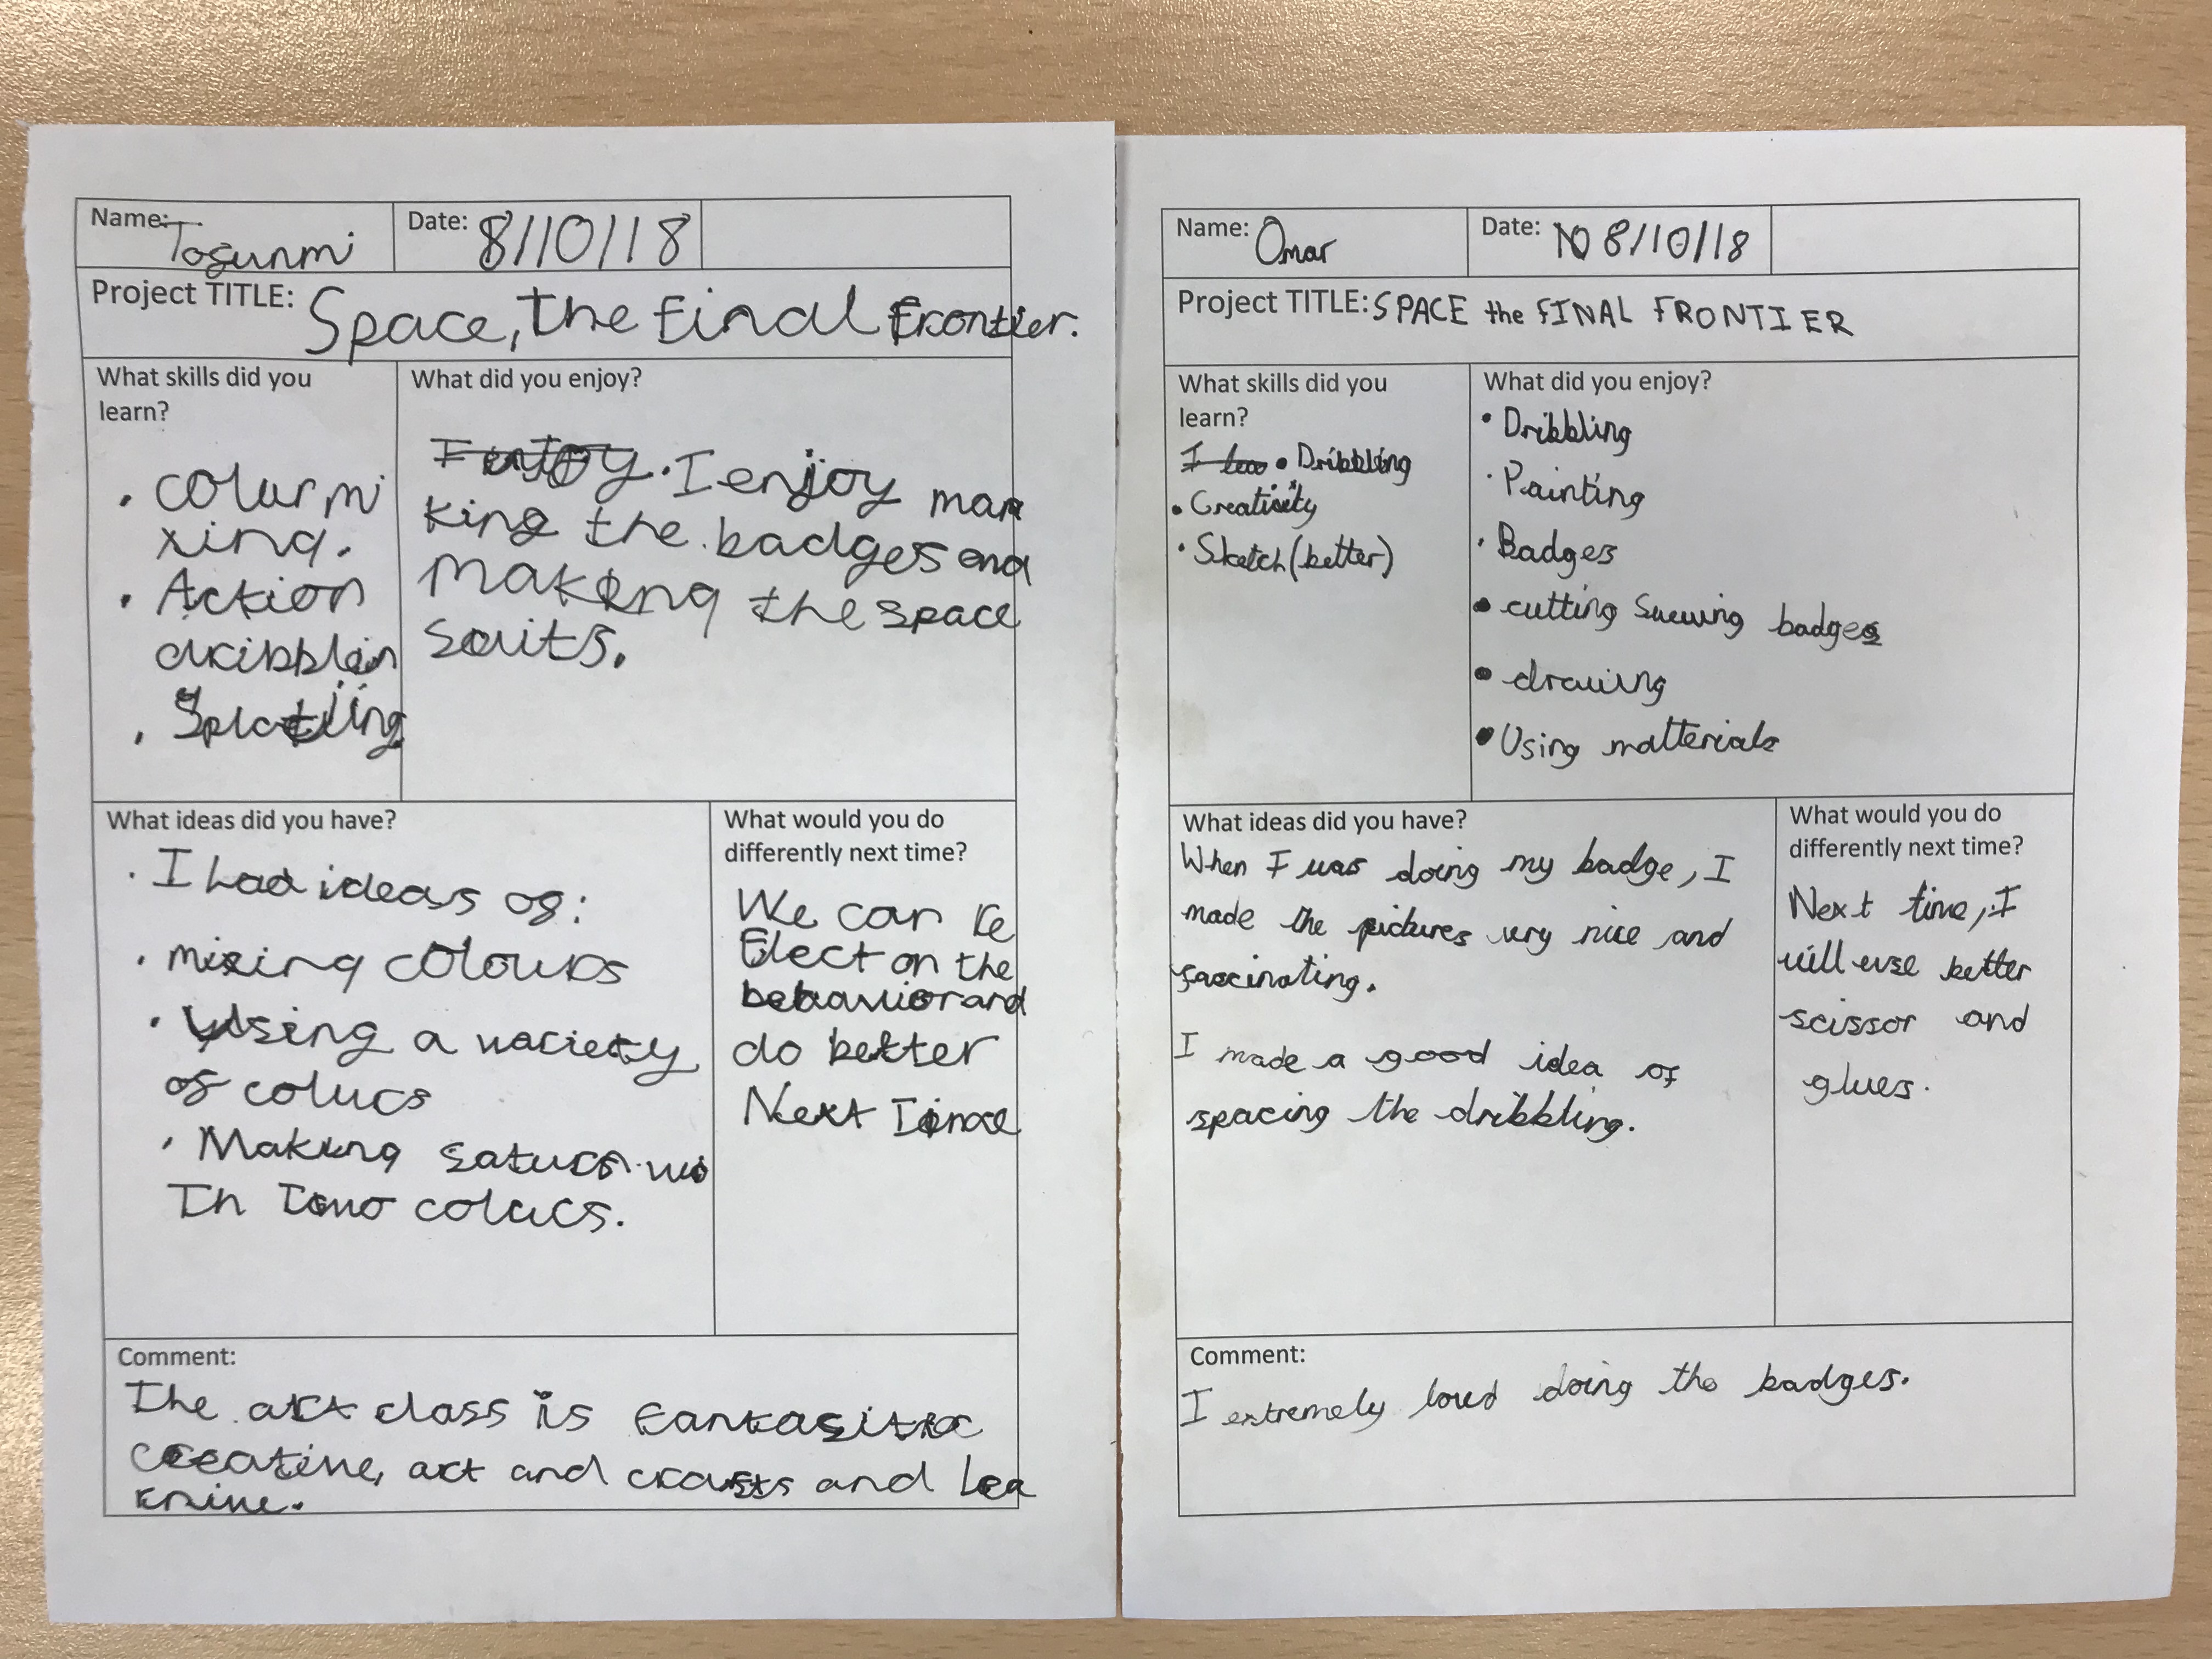 Name: Togunmi
Date: 8/10/18
Project TITLE: Space, the final frontier.
What skills did you
learn?
• colur mi
xing.
• Action
dribblin
• Splatiing
What did you enjoy?
I enjoy mak
king the badges and
making the space
suits.
What ideas did you have?
• I had ideas of:
• mixing colours
• Using a variety
of colurs
• Making saturn wi
th two colurs.
What would you do
differently next time?
We can re
flect on the
behavior and
do better
Next Time
Comment:
The art class is fantasitic
creative, art and crafts and lea
rnive.
Name: Omar
Date: 8/10/18
Project TITLE: SPACE the fINAL FRONTIER
What skills did you
learn?
• Dribbling
• Creativity
• Sketch (better)
What did you enjoy?
• Dribbling
• Painting
• Badges
• cutting Suewing badges
• drawing
• Using matterials
What ideas did you have?
When I was doing my badge, I
made the pictures very nice and
fascinating.
I made a good idea of
spacing the dribbling.
What would you do
differently next time?
Next time, I
will use better
scissor and
glues.
Comment:
I extremely loved doing the badges.